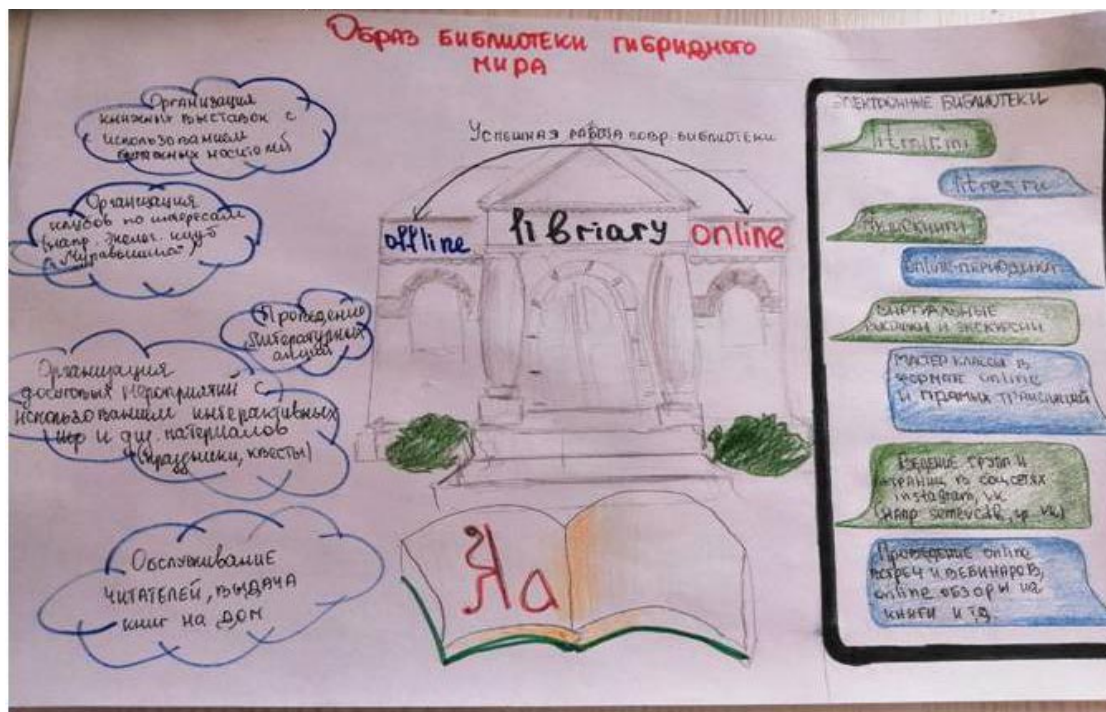 Образ библиотеки гибридного
мира
Организация
книжных выставок с
использованием
бумажных носителей
Организация
клубов по интересам
(напр. эколог. клуб
"Муравьишка")
Проведение
литературных
акций
Организация
досуговых мероприятий с
использованием интерактивных
игр и материалов
(праздники, квесты)
Обслуживание
читателей, выдача
книг на дом
Успешная работа совр. библиотеки
offline
libriary
online
Яа
Электронные библиотеки
litres.ru
Аудиокниги
online-периодика
Виртуальные
и экскурсии
Мастер классы в
формате online
и прямых трансляций
Ведение групп и
страниц в соцсетях
instagram, vk
(напр. semevcdb, гр. vk)
Проведение online
встреч и вебинаров,
online обзоры на
книги и т.д.